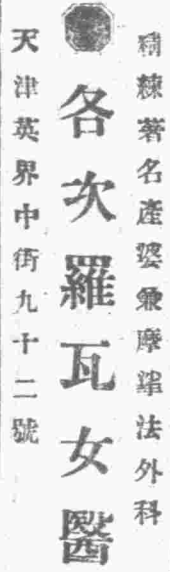 精練著名產婆兼摩擦法外科
各次羅瓦女醫
天津英界中街九十二號